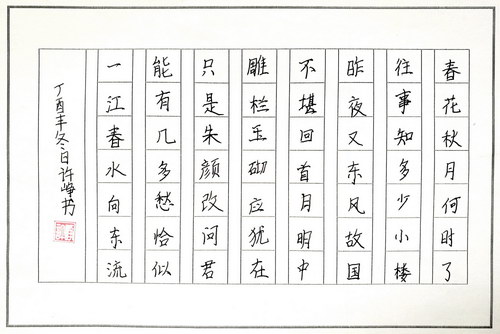 春花秋月何时了
往事知多少小楼
昨夜又东风故国
不堪回首月明中
雕栏玉砌应犹在
只是朱颜改问君
能有几多愁恰似
一江春水向东流
丁酉年冬日许书